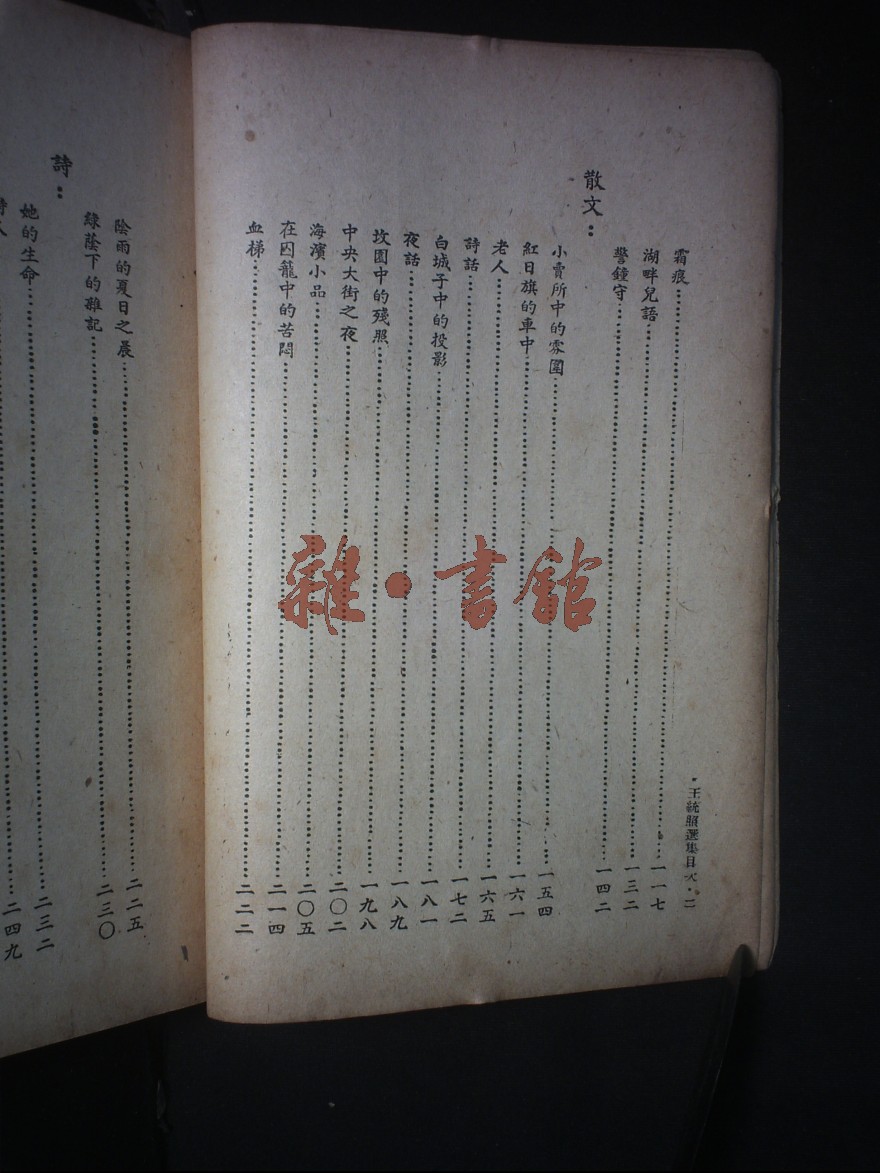 ・王統照選集目次・二
霜痕……一一七
湖畔兒語……一三二
警鐘守……一四二
散文：
小賣所中的雰圍……一五四
紅日旗的車中……一六一
老人……一六五
詩話……一七二
白城子中的投影……一八一
夜話……一八九
坟園中的殘照……一九八
中央大街之夜……二〇二
海濱小品……二〇五
在囚籠中的苦悶……二一四
血梯……二二二
陰雨的夏日之晨……二二五
綠蔭下的雜記……二三〇
詩：
她的生命……二三二
人……二四九
雜・書館